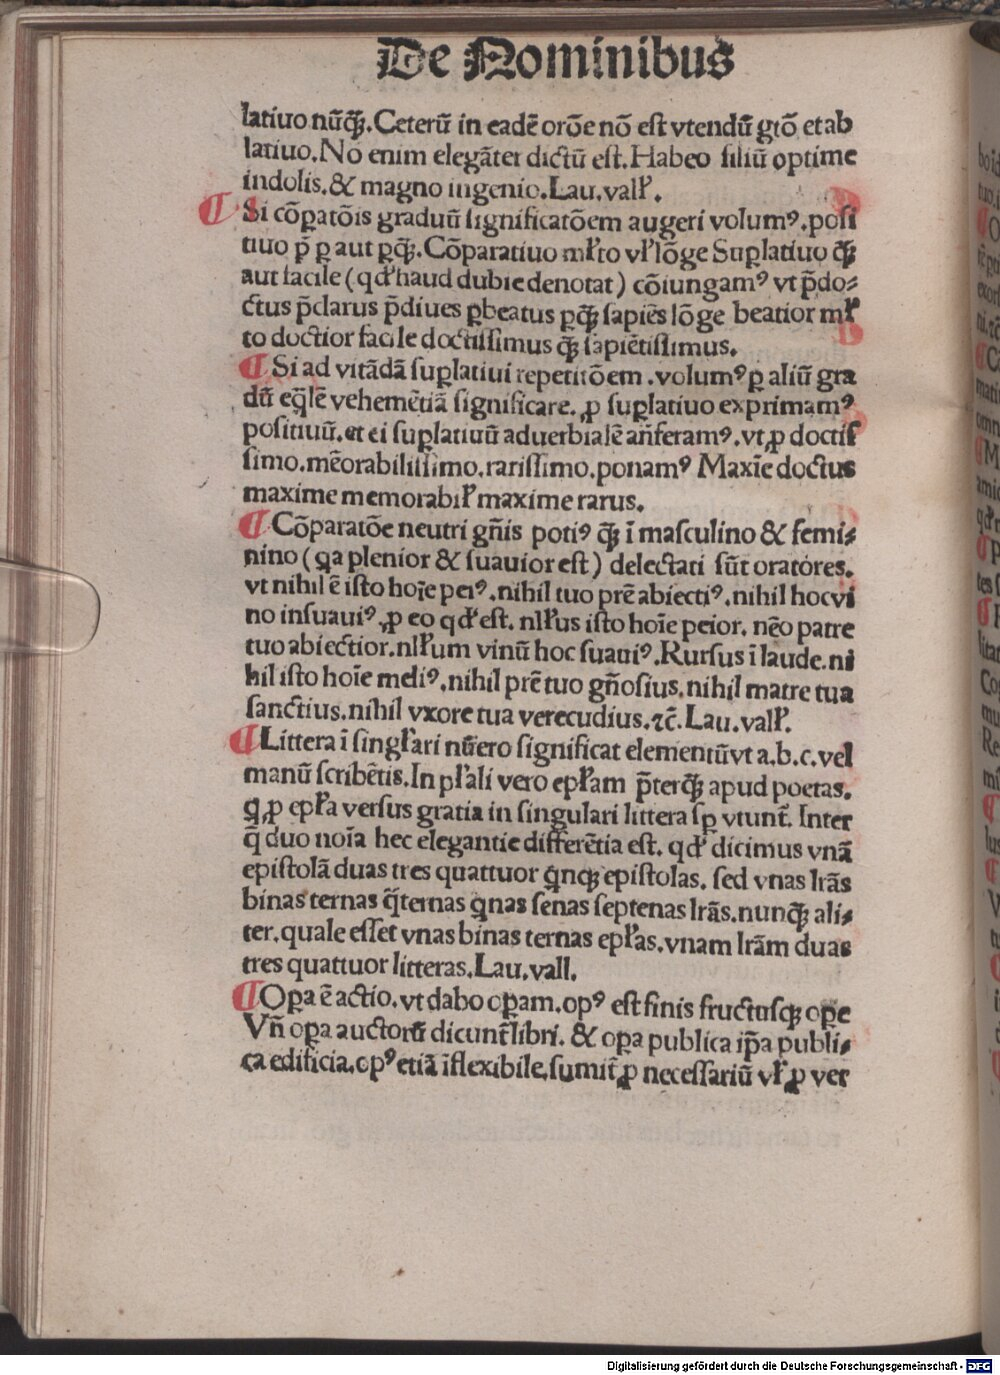 De Nominibus
latiuo nūqꝫ. Ceterū in eadē orōe nō est vtendū gtō et ab
latiuo. No enim elegāter dictū est. Habeo filiū optime
indolis. & magno ingenio. Lau. valꝉ.
¶ Si cōꝑatōis graduū significatōem augeri volumꝰ. posi
tiuo p̄ ꝑ aut ꝑqꝫ. Cōꝑaratiuo mꝉto vꝉ lōge Suꝑlatiuo qꝫ
aut facile (qđ haud dubie denotat) cōiungamꝰ vt p̄do⸗
ctus p̄clarus p̄diues ꝑbeatus ꝑqꝫ sapiēs lōge beatior mꝉ
to doctior facile doctissimus qꝫ sapiētissimus.
¶ Si ad vitādā suꝑlatiui repetitōem. volumꝰ ꝑ aliū gra
dū eq̄lē vehemētiā significare. ꝓ suꝑlatiuo exprimamꝰ
positiuū. et ei suꝑlatiuū aduerbialē an̄feramꝰ. vt ꝓ doctis
simo. mēorabilissimo. rarissimo. ponamꝰ Maxīe doctus
maxime memorabiꝉ maxime rarus.
¶ Cōꝑaratōe neutri gn̄is potiꝰ qꝫ ī masculino & femi⸗
nino (qa plenior & suauior est) delectati sūt oratores.
vt nihil ē isto hoīe peiꝰ. nihil tuo prē abiectiꝰ. nihil hoc vi
no insuauiꝰ. ꝓ eo qđ est. nlꝉus isto hoīe peior. nēo patre
tuo abiectior. nlꝉum vinū hoc suauiꝰ. Rursus ī laude. ni
hil isto hoīe meliꝰ. nihil prē tuo gn̄osius. nihil matre tua
sanctius. nihil vxore tua verecudius. ⁊c̄. Lau. valꝉ.
¶ Littera ī singꝉari nūero significat elementū vt a. b. c. vel
manū scribētis. In pꝉali vero epꝉam p̄terqꝫ apud poetas.
q ꝓ epꝉa versus gratia in singulari littera sꝑ vtunt̄. Inter
q̄ duo noīa hec elegantie differētia est. qđ dicimus vnā
epistolā duas tres quattuor qnqꝫ epistolas. sed vnas lrās
binas ternas q̄ternas qnas senas septenas lrās. nunqꝫ ali⸗
ter. quale esset vnas binas ternas epꝉas. vnam lrām duas
tres quattuor litteras. Lau. vall.
¶ Oꝑa ē actio. vt dabo oꝑam. opꝰ est finis fructusqꝫ oꝑe
Vn̄ oꝑa auctorū dicunt̄ libri. & oꝑa publica ip̄a publi⸗
ca edificia. opꝰ etiā īflexibile. sumit̄ ꝓ necessariū vꝉ ꝓ ver
Digitalisierung gefördert durch die Deutsche Forschungsgemeinschaft - DFG